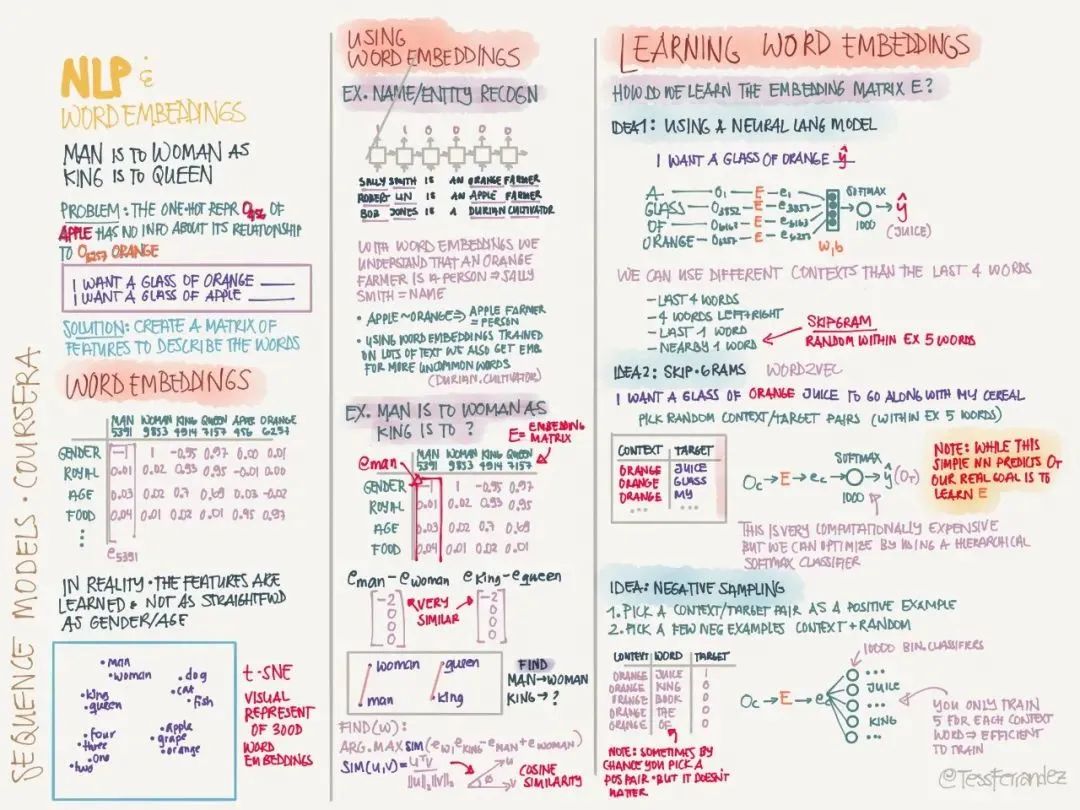 SEQUENCE MODELS · COURSERA
NLP &
WORD EMBEDDINGS
MAN IS TO WOMAN AS
KING IS TO QUEEN
PROBLEM: THE ONE-HOT REPR O456 OF
APPLE HAS NO INFO ABOUT ITS RELATIONSHIP
TO O6257 ORANGE
I WANT A GLASS OF ORANGE ____
I WANT A GLASS OF APPLE ____
SOLUTION: CREATE A MATRIX OF
FEATURES TO DESCRIBE THE WORDS
WORD EMBEDDINGS
MAN WOMAN KING QUEEN APPLE ORANGE
5391 9853 4914 7157 456 6257
GENDER -1 1 -0.95 0.97 0.00 0.01
ROYAL 0.01 0.02 0.93 0.95 -0.01 0.00
AGE 0.03 0.02 0.7 0.69 0.03 -0.02
FOOD 0.04 0.01 0.02 0.01 0.95 0.97
e5391
IN REALITY · THE FEATURES ARE
LEARNED & NOT AS STRAIGHTFWD
AS GENDER/AGE
man
woman
dog
cat
fish
king
queen
four
three
one
two
apple
grape
orange
t-SNE
VISUAL
REPRESENT
OF 300D
WORD
EMBEDDINGS
USING
WORD EMBEDDINGS
EX. NAME/ENTITY RECOGN
1 1 0 0 0 0
SALLY SMITH IS AN ORANGE FARMER
ROBERT LIN IS AN APPLE FARMER
BOB JONES IS A DURIAN CULTIVATOR
WITH WORD EMBEDDINGS WE
UNDERSTAND THAT AN ORANGE
FARMER IS A PERSON ⇒ SALLY
SMITH = NAME
• APPLE ~ ORANGE ⇒ APPLE FARMER
= PERSON
• USING WORD EMBEDDINGS TRAINED
ON LOTS OF TEXT WE ALSO GET EMB.
FOR MORE UNCOMMON WORDS
(DURIAN, CULTIVATOR)
EX. MAN IS TO WOMAN AS
KING IS TO ?
E = EMBEDDING
MATRIX
eman
MAN WOMAN KING QUEEN
5391 9853 4914 7157
GENDER -1 1 -0.95 0.97
ROYAL 0.01 0.02 0.93 0.95
AGE 0.03 0.02 0.7 0.69
FOOD 0.04 0.01 0.02 0.01
eman - ewoman eking - equeen
-2 -2
0 0
0 0
0 0
VERY
SIMILAR
woman
queen
man
king
FIND
MAN → WOMAN
KING → ?
FIND(W):
ARG.MAX SIM(ew, eking - eman + ewoman)
SIM(u,v) = uTv / ||u||2||v||2
u
v
COSINE
SIMILARITY
LEARNING WORD EMBEDDINGS
HOW DO WE LEARN THE EMBEDDING MATRIX E?
IDEA 1: USING A NEURAL LANG MODEL
I WANT A GLASS OF ORANGE ŷ
A — O1 — E — e1
GLASS — O3852 — E — e3852
OF — O6163 — E — e6163
ORANGE — O6257 — E — e6257
W,b
SOFTMAX
1000
ŷ
(JUICE)
WE CAN USE DIFFERENT CONTEXTS THAN THE LAST 4 WORDS
- LAST 4 WORDS
- 4 WORDS LEFT+RIGHT
- LAST 1 WORD
- NEARBY 1 WORD
SKIPGRAM
RANDOM WITHIN EX 5 WORDS
IDEA 2: SKIP-GRAMS WORD2VEC
I WANT A GLASS OF ORANGE JUICE TO GO ALONG WITH MY CEREAL
PICK RANDOM CONTEXT/TARGET PAIRS (WITHIN EX 5 WORDS)
CONTEXT TARGET
ORANGE JUICE
ORANGE GLASS
ORANGE MY
... ...
Oc → E → ec → ŷ (OT)
SOFTMAX
1000
NOTE: WHILE THIS
SIMPLE NN PREDICTS OT
OUR REAL GOAL IS TO
LEARN E
THIS IS VERY COMPUTATIONALLY EXPENSIVE
BUT WE CAN OPTIMIZE BY USING A HIERARCHICAL
SOFTMAX CLASSIFIER
IDEA: NEGATIVE SAMPLING
1. PICK A CONTEXT/TARGET PAIR AS A POSITIVE EXAMPLE
2. PICK A FEW NEG EXAMPLES CONTEXT + RANDOM
CONTEXT WORD TARGET
ORANGE JUICE 1
ORANGE KING 0
ORANGE BOOK 0
ORANGE THE 0
ORANGE OF 0
NOTE: SOMETIMES BY
CHANCE YOU PICK A
POS PAIR · BUT IT DOESN'T
MATTER
Oc → E → ec
10000 BIN. CLASSIFIERS
...
JUICE
...
KING
...
YOU ONLY TRAIN
5 FOR EACH CONTEXT
WORD ⇒ EFFICIENT
TO TRAIN
@TessFerrandez